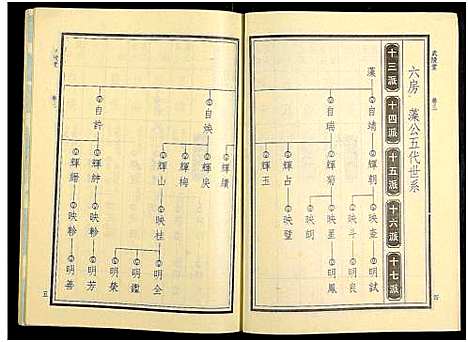 武陵堂
卷三
六房 藻公五代世系
十三派
十四派
十五派
十六派
十七派
藻
自靖
自瑞
自煥
自許
輝朝
輝菊
輝占
輝玉
輝績
輝梅
輝山
輝紳
輝勝
映奎
映斗
映星
映胡
映璧
映桂
映粉
映粉
明良
明鳳
明全
明鑑
明榮
明芳
明善
四
五